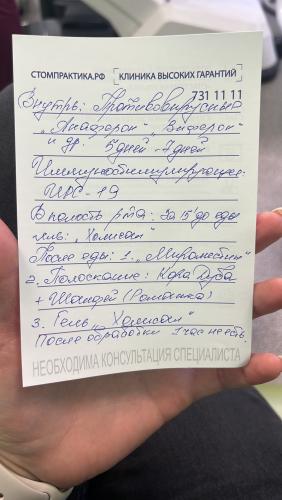 СТОМПРАКТИКА.РФ КЛИНИКА ВЫСОКИХ ГАРАНТИЙ
731 11 11
Внутрь: Противовирусные
„Анаферон" „Виферон"
и др. 5 дней - 7 дней
Иммуностимулирующее:
ИРС-19
В полость рта: За 15' до еды
гель: „Холисал"
После еды: 1. „Мирамистин"
2. Полоскание: Кора Дуба
+ Шалфей (Ромашка)
3. Гель „Холисал"
После обработки 1 час не есть.
НЕОБХОДИМА КОНСУЛЬТАЦИЯ СПЕЦИАЛИСТА